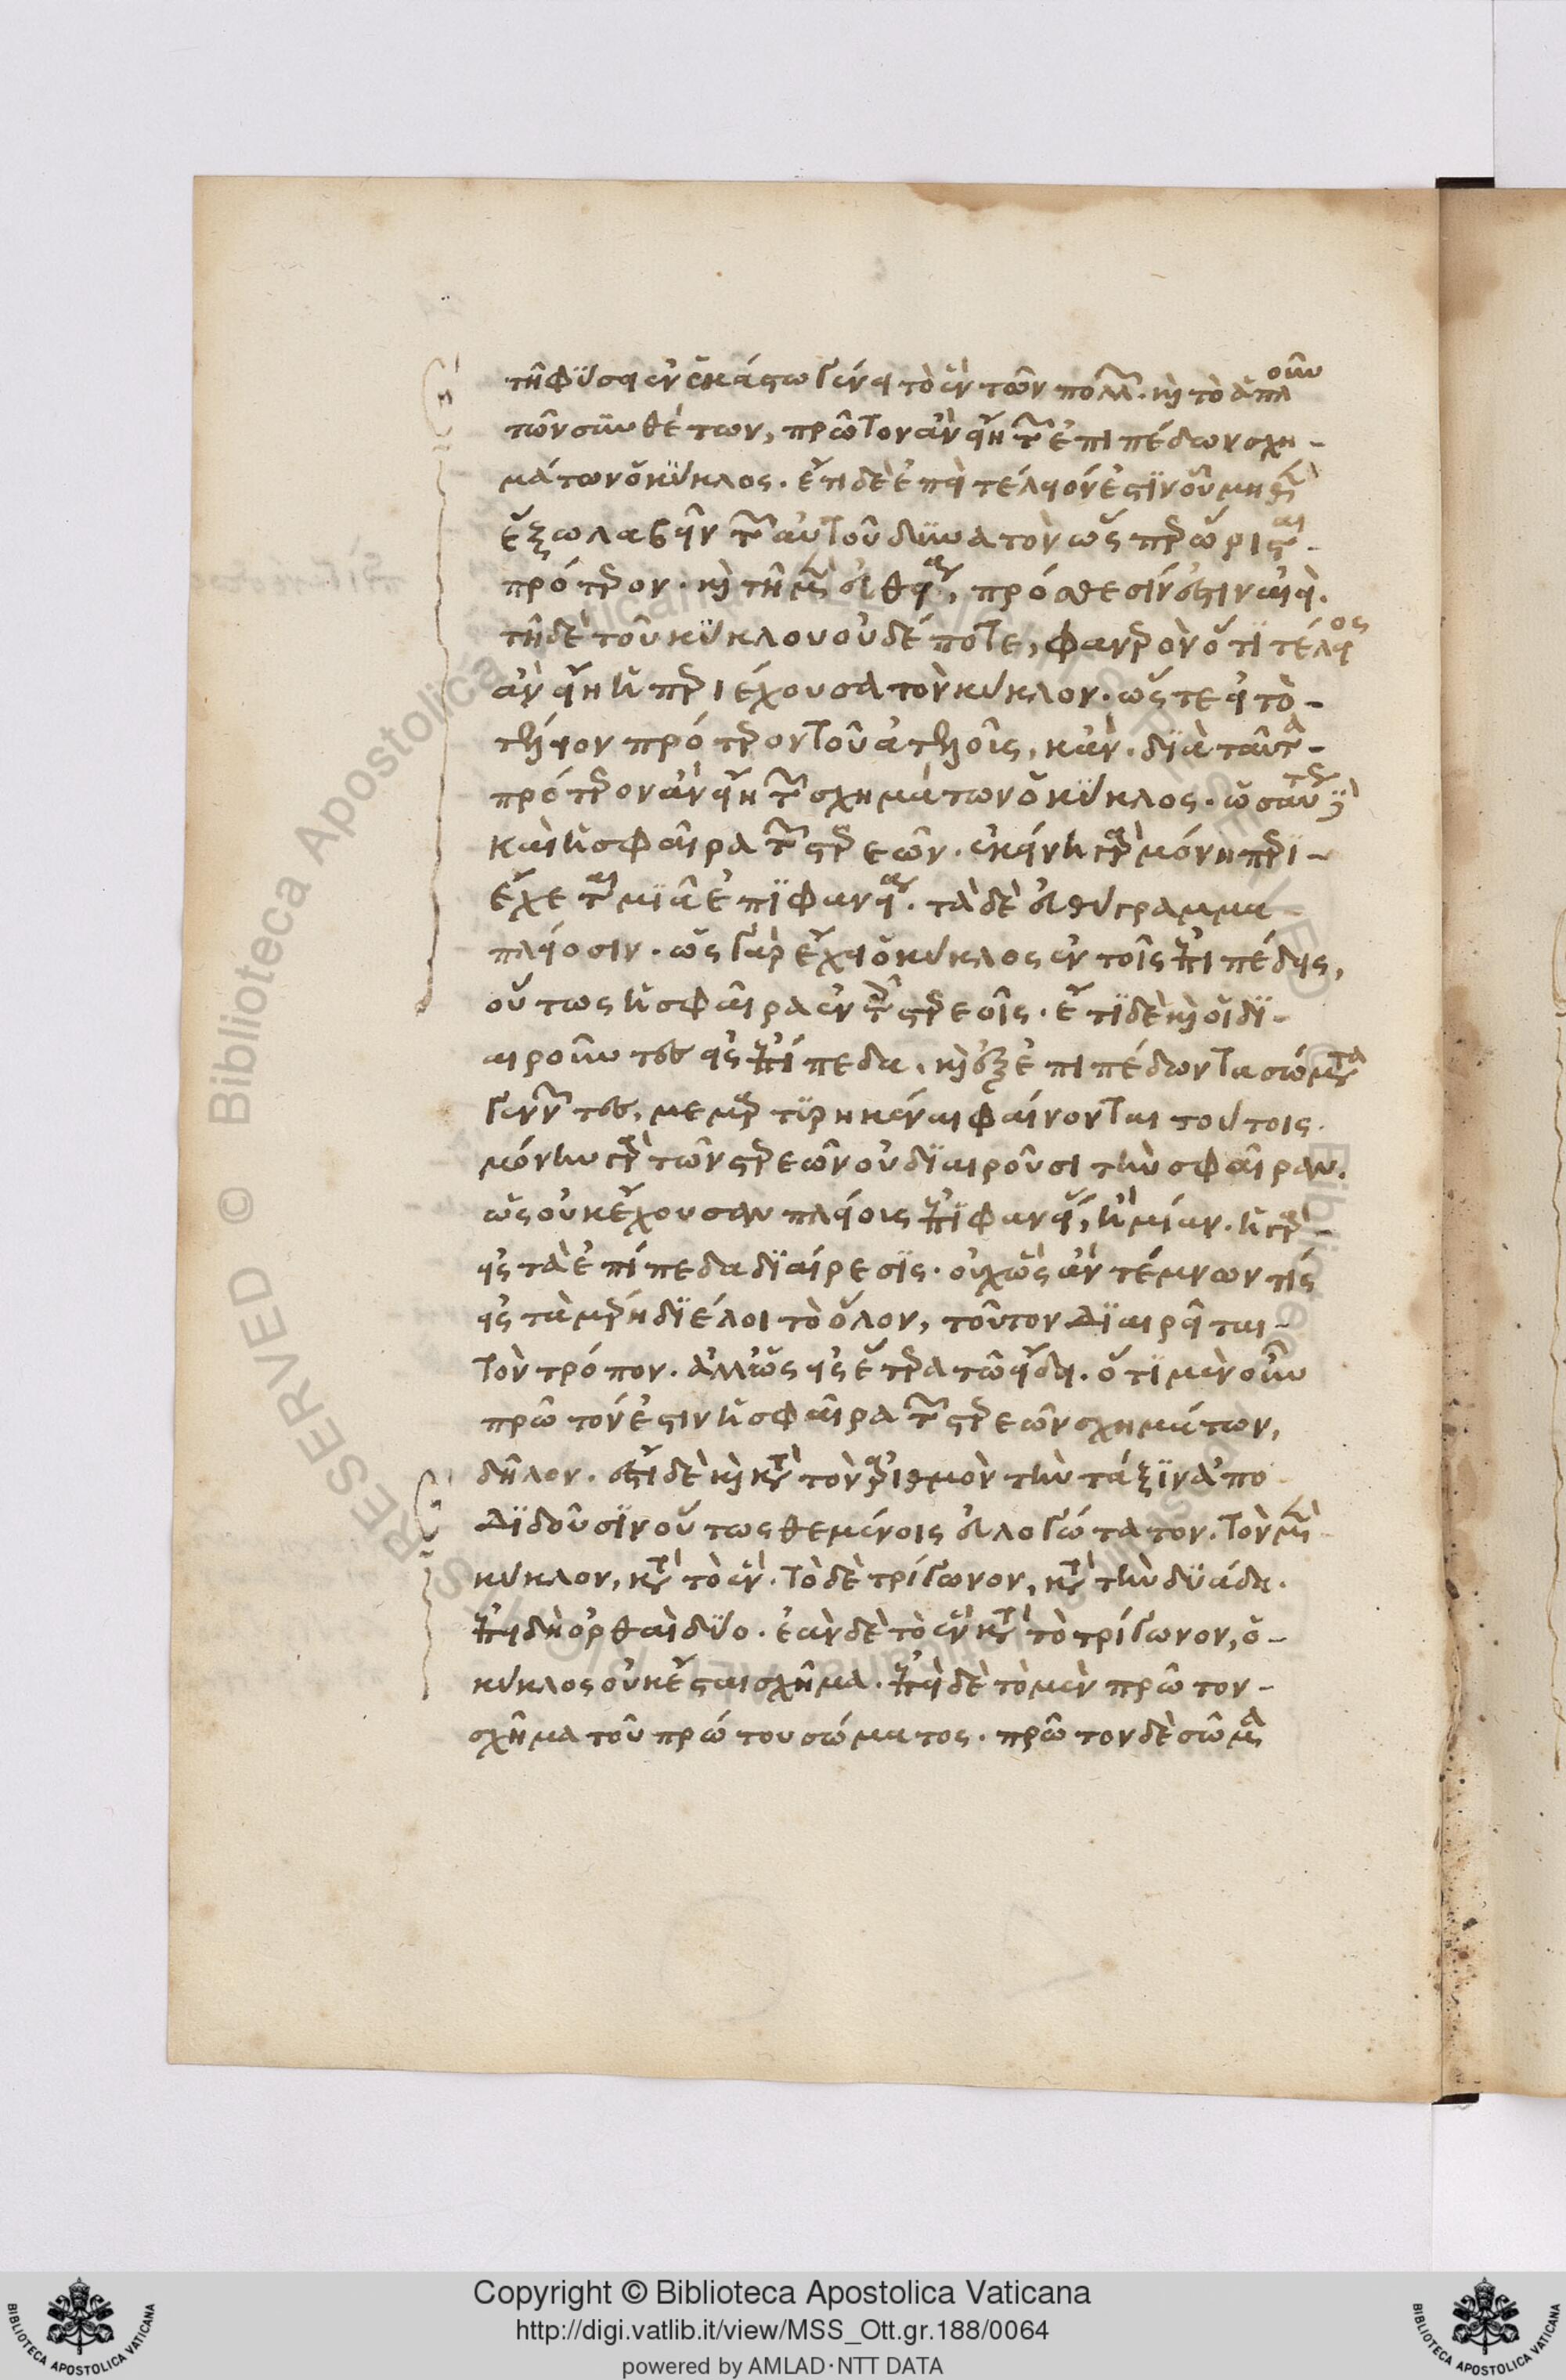 τῇ φύσει ἐν ἑκάστω γένει τὸ ἓν τῶν πολλῶν. καὶ τὸ ἁπλοῦν
τῶν συνθέτων, πρῶτον ἂν εἴη τῶν ἐπιπέδων σχη-
μάτων ὁ κύκλος. ἔτι δὲ ἐπεὶ τέλειόν ἐστιν οὗ μηδὲν
ἔξω λαβεῖν τῶν αὐτοῦ δυνατὸν ὥσπερ ὥρισται
πρότερον. καὶ τῇ μὲν εὐθεία, πρόσθεσίν ἐστιν ἀεὶ.
τῇ δὲ τοῦ κύκλου οὐδέποτε, φανερὸν ὅτι τέλειος
ἂν εἴη ἡ περιέχουσα τὸν κύκλον. ὥστε εἰ τὸ-
τέλειον πρότερον τοῦ ἀτελοῦς, κἂν. διὰ ταῦτα-
πρότερον ἂν εἴη τῶν σχημάτων ὁ κύκλος. ὡσαύτως δὲ
καὶ ἡ σφαῖρα τῶν στερεῶν. ἐκείνη γὰρ μόνη περι-
έχεται μιᾶ ἐπιφανεία. τὰ δὲ εὐθύγραμμα
πλείοσιν. ὡς γὰρ ἔχει ὁ κύκλος ἐν τοῖς ἐπιπέδοις,
οὕτως ἡ σφαῖρα ἐν τοῖς στερεοῖς. ἔτι δὲ καὶ οἱ δι-
αιροῦντες εἰς ἐπίπεδα. καὶ ἐξ ἐπιπέδων τὰ σώματα
γεννῶντες, μεμαρτυρηκέναι φαίνονται τούτοις.
μόνην γὰρ τῶν στερεῶν οὐ διαιροῦσι τὴν σφαῖραν.
ὡς οὐκ ἔχουσαν πλείους ἐπιφανείας, ἢ μίαν. ἡ γὰρ-
εἰς τὰ ἐπίπεδα διαίρεσις. οὐχ ὡς ἂν τέμνων τίς
εἰς τὰ μέρη διέλοι τὸ ὅλον, τοῦτον διαιρεῖται-
τὸν τρόπον. ἀλλ᾽ ὡς εἰς ἕτερα τῷ εἴδει. ὅτι μὲν οὖν
πρῶτόν ἐστιν ἡ σφαῖρα τῶν στερεῶν σχημάτων,
δῆλον. ἔστι δὲ καὶ κατὰ τὸν ἀριθμὸν τὴν τάξιν ἀπο
διδοῦσιν οὕτως θεμένοις εὐλογώτατον. τὸν μὲν
κύκλον, κατὰ τὸ ἓν. τὸ δὲ τρίγωνον, κατὰ τὴν δυάδα.
ἐπειδὴ ὀρθαὶ δύο. ἐὰν δὲ τὸ ἓν κατὰ τὸ τρίγωνον, ὁ-
κύκλος οὐκ ἔσται σχῆμα. ἐπεὶ δὲ τὸ μὲν πρῶτον-
σχῆμα τοῦ πρώτου σώματος. πρῶτον δὲ σῶμα
Copyright © Biblioteca Apostolica Vaticana
http://digi.vatlib.it/view/MSS_Ott.gr.188/0064
powered by AMLAD·NTT DATA